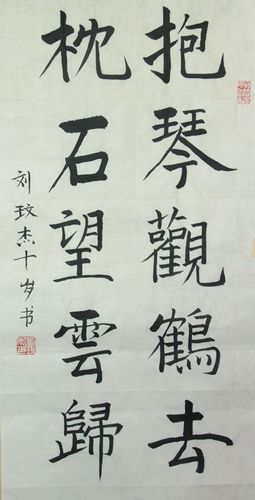 抱琴觀鶴去
枕石望雲歸
刘玟杰十岁书